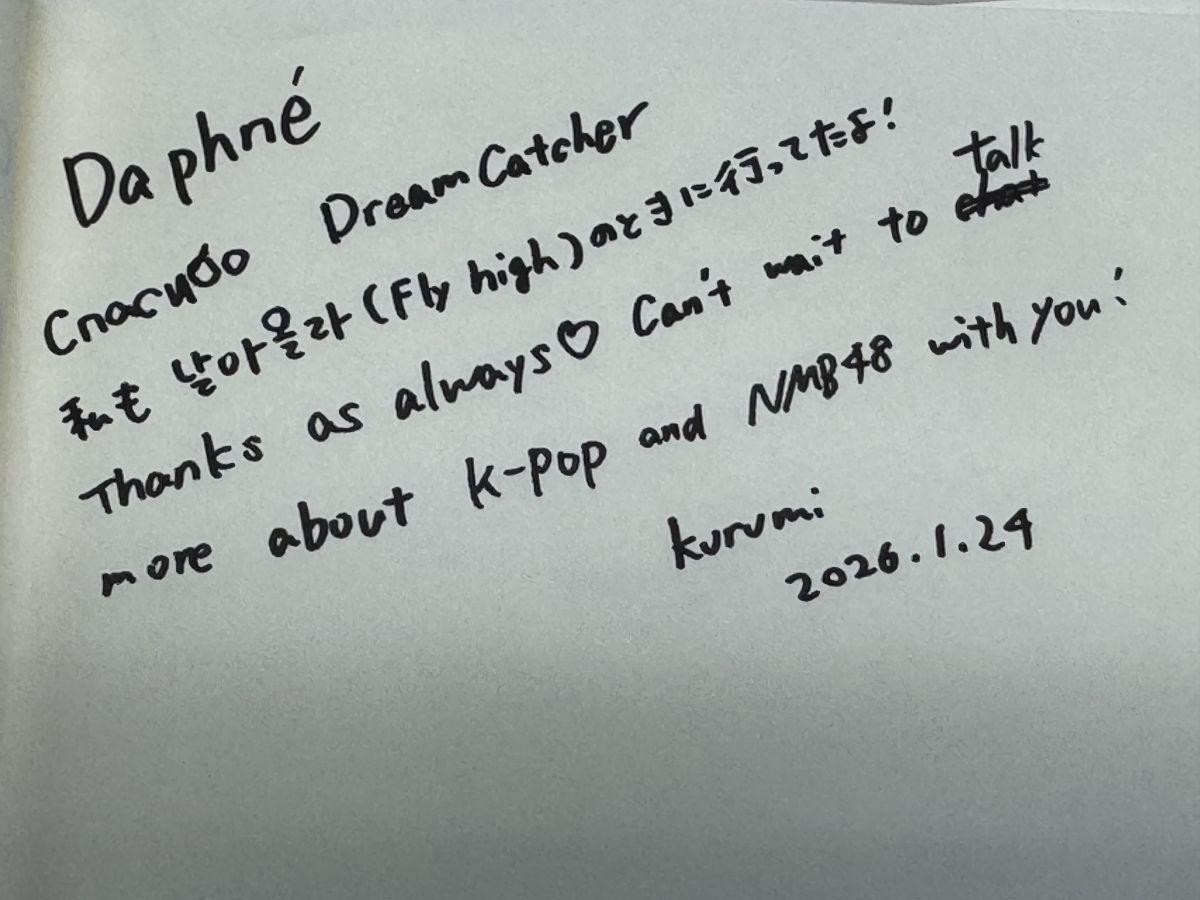 Daphné
Спасибо DreamCatcher
私も 날아올라 (Fly high) のときに行ってたよ!
Thanks as always♡ Can't wait to talk
more about k-pop and NMB48 with you!
kurumi
2026.1.24